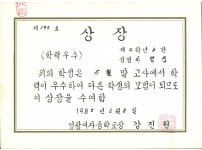 제 192 호
상장
(학력우수)
제 2 학년 8 반
위의 학생은 5 월 말 고사에서 학
력이 우수하여 다른 학생의 모범이 되므로
이 상장을 수여함
1985 년 6 월 8 일
여자중학교장 강진원